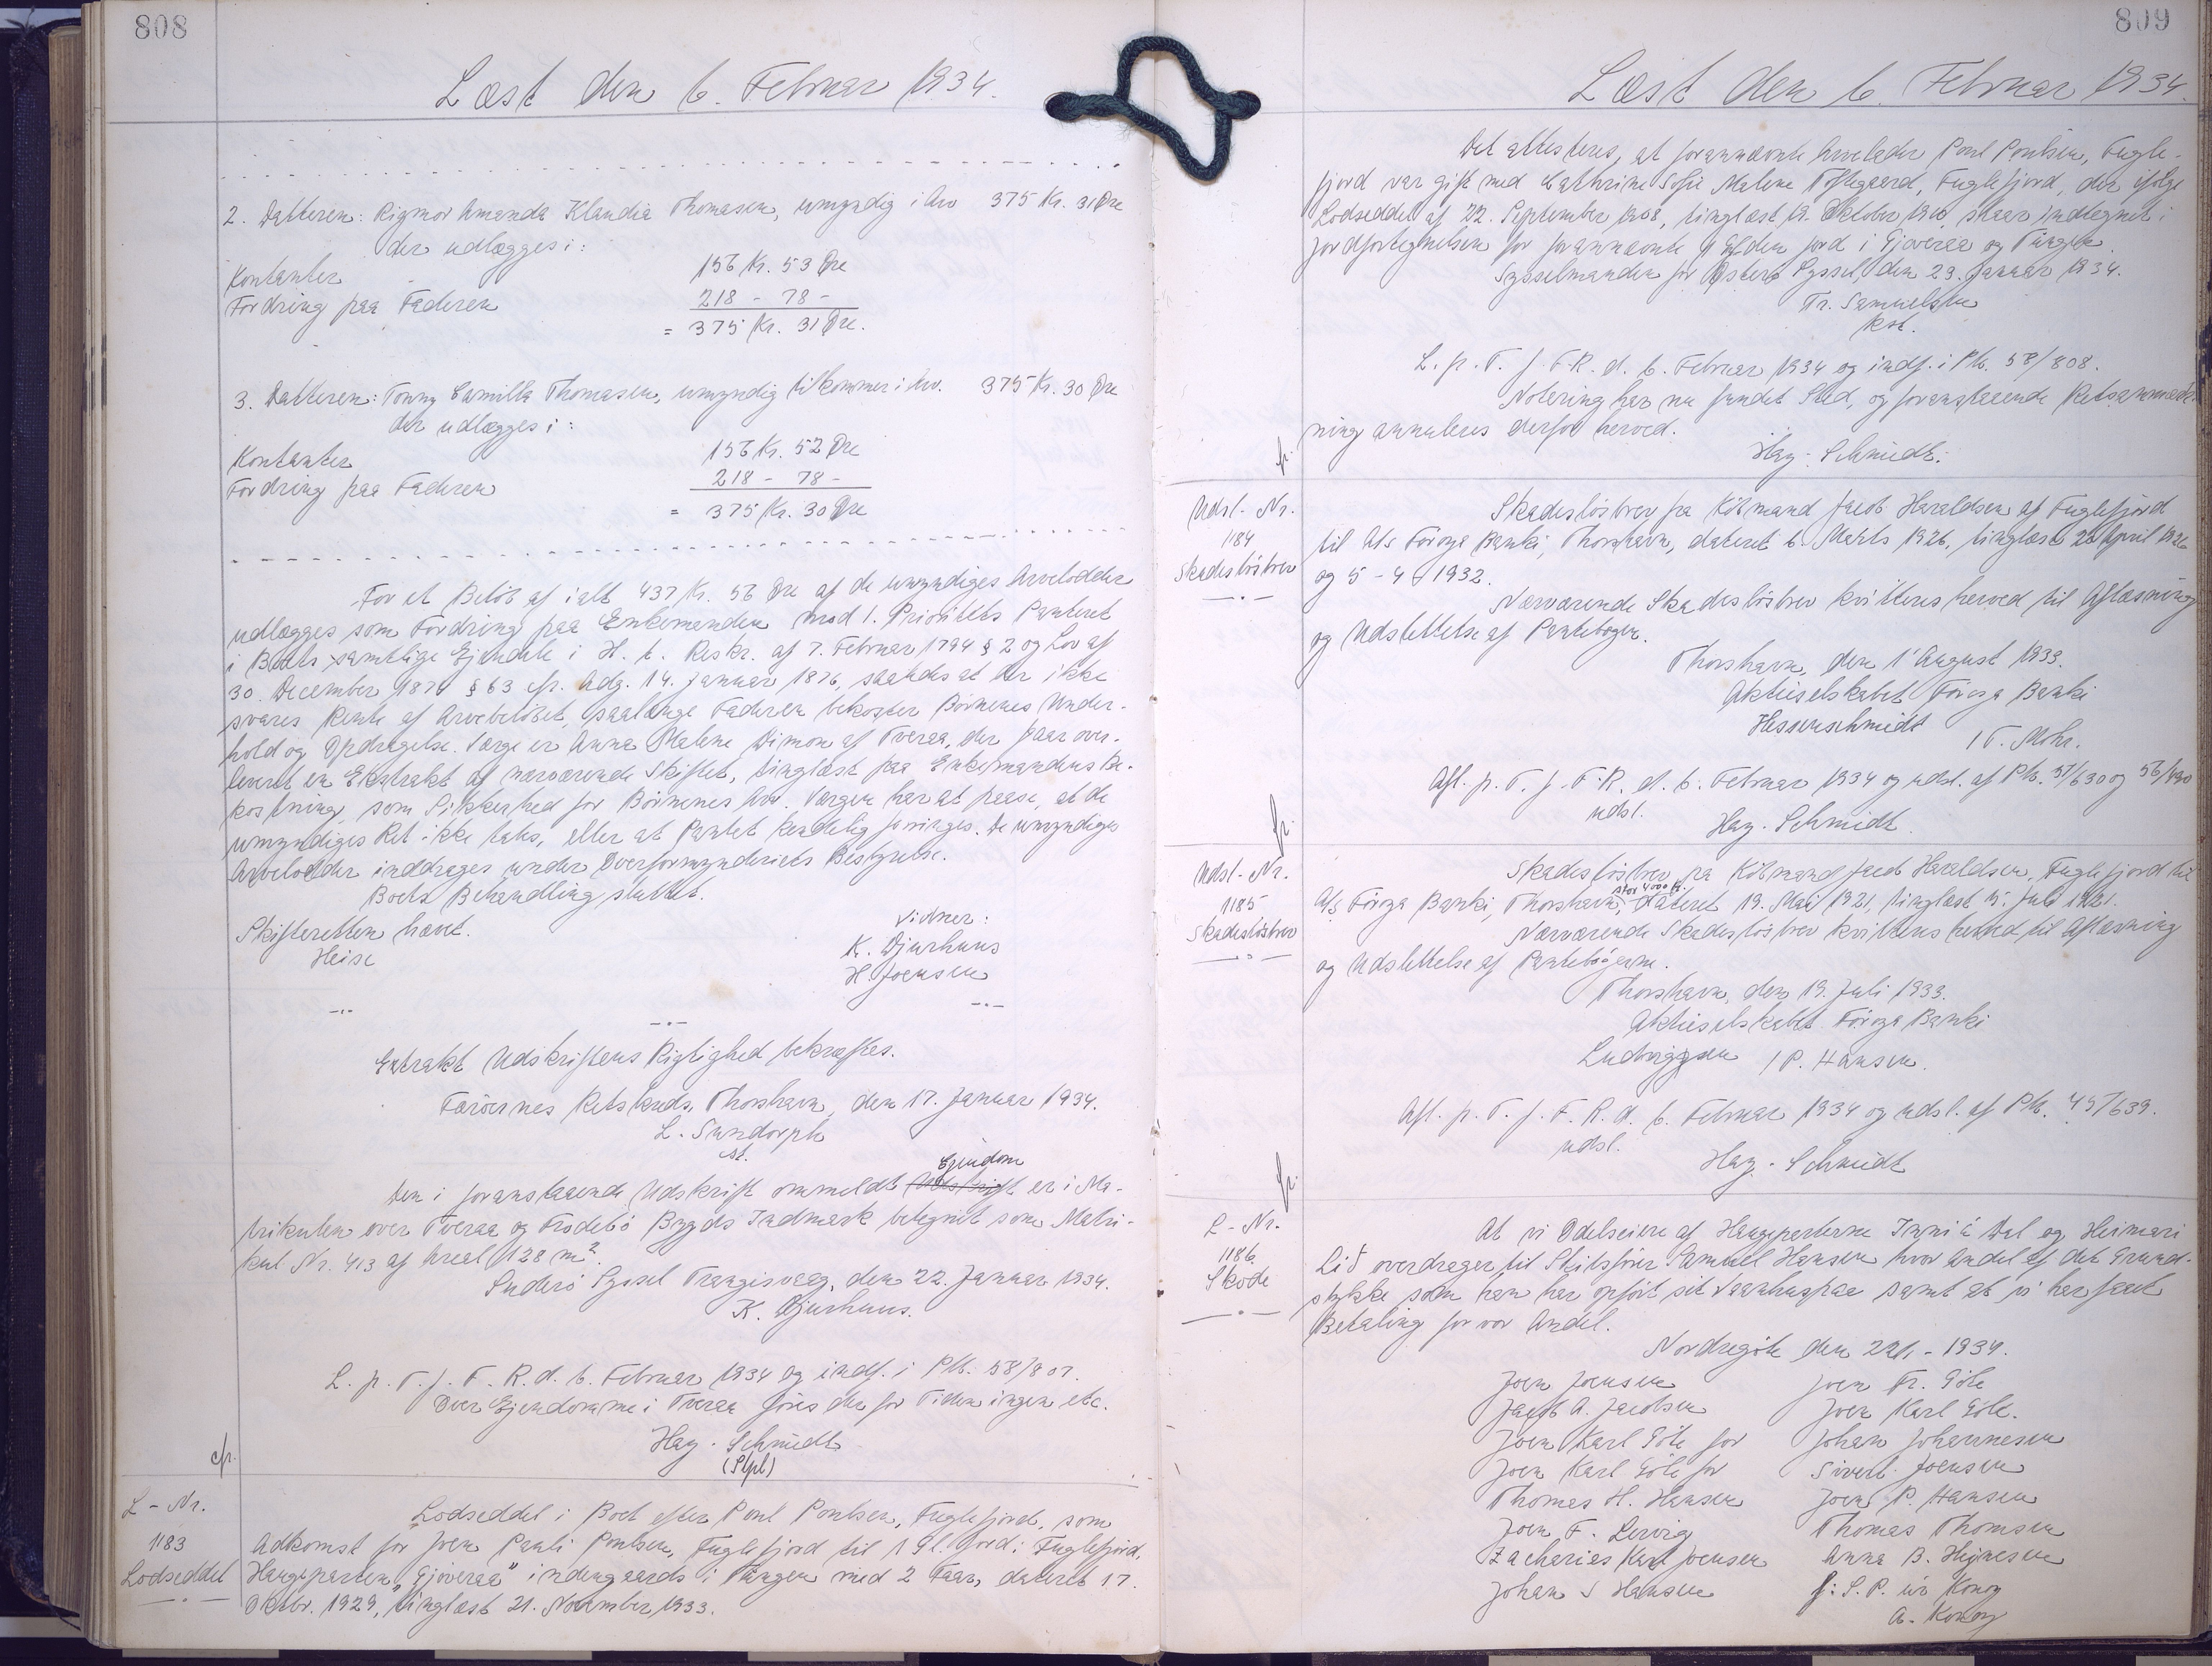 808
Læst den 6. Februar 1934.
2. Datteren: Rigmor Amanda Klaudia Thomasen, umyndig i Arv 375 Kr. 31 Øre
der udlægges i:
Kontanter 156 Kr. 53 Øre
Fordring paa Faderen 218 - 78 -
= 375 Kr. 31 Øre.
3. Datteren: Tonny Camilla Thomasen, umyndig tilkommer i Arv. 375 Kr. 30 Øre
der udlægges i:
Kontanter 156 Kr. 52 Øre
Fordring paa Faderen 218 - 78 -
= 375 Kr. 30 Øre
For et Beløb af ialt 437 Kr. 56 Øre af de umyndiges Arvelodder
udlægges som Fordring paa Enkemanden mod 1. Prioritets Panteret
i Boets samtlige Ejendele i H. t. Reskr. af 7. Februar 1794 § 2 og Lov af
30. December 1874 § 63 cfr. Adg. 14. Januar 1876, saaledes at der ikke
svares Rente af Arvebeløbet, saalænge Faderen bekoster Børnenes Under-
hold og Opdragelse. Værge er Anna Malene Dimon af Tveraa, der faar over-
leveret en Ekstrakt af nærværende Skiftet, tinglæst paa Enkemandens Be-
kostning, som Sikkerhed for Børnenes Arv. Værgen har at paase, at de
umyndiges Ret ikke tabes, eller at Pantet kendelig forringes. De umyndiges
Arvelodder inddrages under Overformynderiets Bestyrelse.
Boets Behandling sluttet.
Skifteretten hævet. Vidner:
Heise K. Djurhuus
H. Joensen
Extrakt Udskriftens Rigtighed bekræftes.
Færøernes Retskreds, Thorshavn, den 17. Januar 1934.
L. Sundorph
st.
Ejendom
Den i foranstaaende Udskrift ommeldt Udskrift er i Ma-
trikulen over Tveraa og Frodebø Bygds Indmark betegnet som Matri-
kul Nr. 413 af Areal 128 m².
Suderø Syssel Trangisvaag, den 22. Januar 1934.
K. Djurhuus.
L. p. T. f. F. R. d. 6. Februar 1934 og indf. i Ptb. 58/807.
Over Ejendomme i Tveraa føres der for Tiden ingen etc.
Hay-Schmidt
(Stpl)
cfr.
L-Nr. Lodseddel i Boet efter Poul Poulsen, Fuglefjord, som
1183 Adkomst for Joen Pauli Poulsen, Fuglefjord til 1 Gl. Jord i Fuglefjord,
Lodseddel Haugeparten „Gjøveraa" indengaards i Tungen med 2 Faar, dateret 17.
Oktbr. 1929, tinglæst 21. November 1933.
809
Læst den 6. Februar 1934.
Det attesteres, at forannævnte Arvelader Poul Poulsen, Fugle-
fjord var gift med Cathrine Sofie Malene Toftegaard, Fuglefjord, der ifølge
Lodseddel af 22. September 1908, tinglæst 19. Oktober 1910, staar indtegnet i
Jordfortegnelsen for forannævnte 1 Gylden Jord i Gjøveraa og Tungen.
Sysselmanden for Østerø Syssel, den 29. Januar 1934.
Fr. Samuelsen
kst.
L. p. T. f. F. R. d. 6. Februar 1934 og indf. i Ptb. 58/808.
Notering har nu fundet Sted, og foranstaaende Retsanmærk-
ning annuleres derfor herved.
Hay-Schmidt.
cfr.
Udsl-Nr. Skadesløsbrev fra Købmand Jacob Haraldsen af Fuglefjord
1184 til A/s Føroya Banki, Thorshavn, dateret 6. Marts 1926, tinglæst 20 April 1926
Skadesløsbrev og 5-4 1932.
Nærværende Skadesløsbrev kvitteres herved til Aflæsning
og Udslettelse af Pantebogen.
Thorshavn, den 1' August 1933.
Aktieselskabet Føroya Banki
Hessenschmidt / T. Mohr.
Afl. p. T. f. F. R. d. 6. Februar 1934 og udsl. af Ptb. 51/630 og 56/490
udsl.
Hay-Schmidt.
cfr.
Udsl-Nr. Skadesløsbrev fra Købmand Jacob Haraldsen, Fuglefjord til
stor 4000 Kr.
1185 A/s Føroya Banki, Thorshavn, dateret 19. Mai 1921, tinglæst 5. Juli 1921.
Skadesløsbrev Nærværende Skadesløsbrev kvitteres herved til Aflæsning
og Udslettelse af Pantebøgerne.
Thorshavn, den 19. Juli 1933.
Aktieselskabet Føroya Banki
Ludvigsen / P. Hansen.
Afl. p. T. f. F. R. d. 6. Februar 1934 og udsl. af Ptb. 45/639.
udsl.
Hay-Schmidt
cfr.
L-Nr. At vi Odelseiere af Haugeparterne Inni á Dal og Heimari
1186 Lið overdrager til Skibsfører Samuel Hansen hvor Andel af det Grund-
Skøde stykke som han har opført sit Vaanhus paa samt at vi har faaet
Betaling for vor Andel.
Nordregøte den 22/1 - 1934.
Joen Joensen Joen Fr. Gøte
Jacob A. Jacobsen Joen Karl Gøte.
Joen Karl Gøte for Johan Johannesen
Joen Karl Gøte for Sivert Joensen
Thomas H. Hansen Joen P. Hansen
Joen F. Lervig Thomas Thomsen
Zacharias Karl Joensen Anna B. Hejnesen
Johan S Hansen f: S. P. úr Konoy
A. Konoy